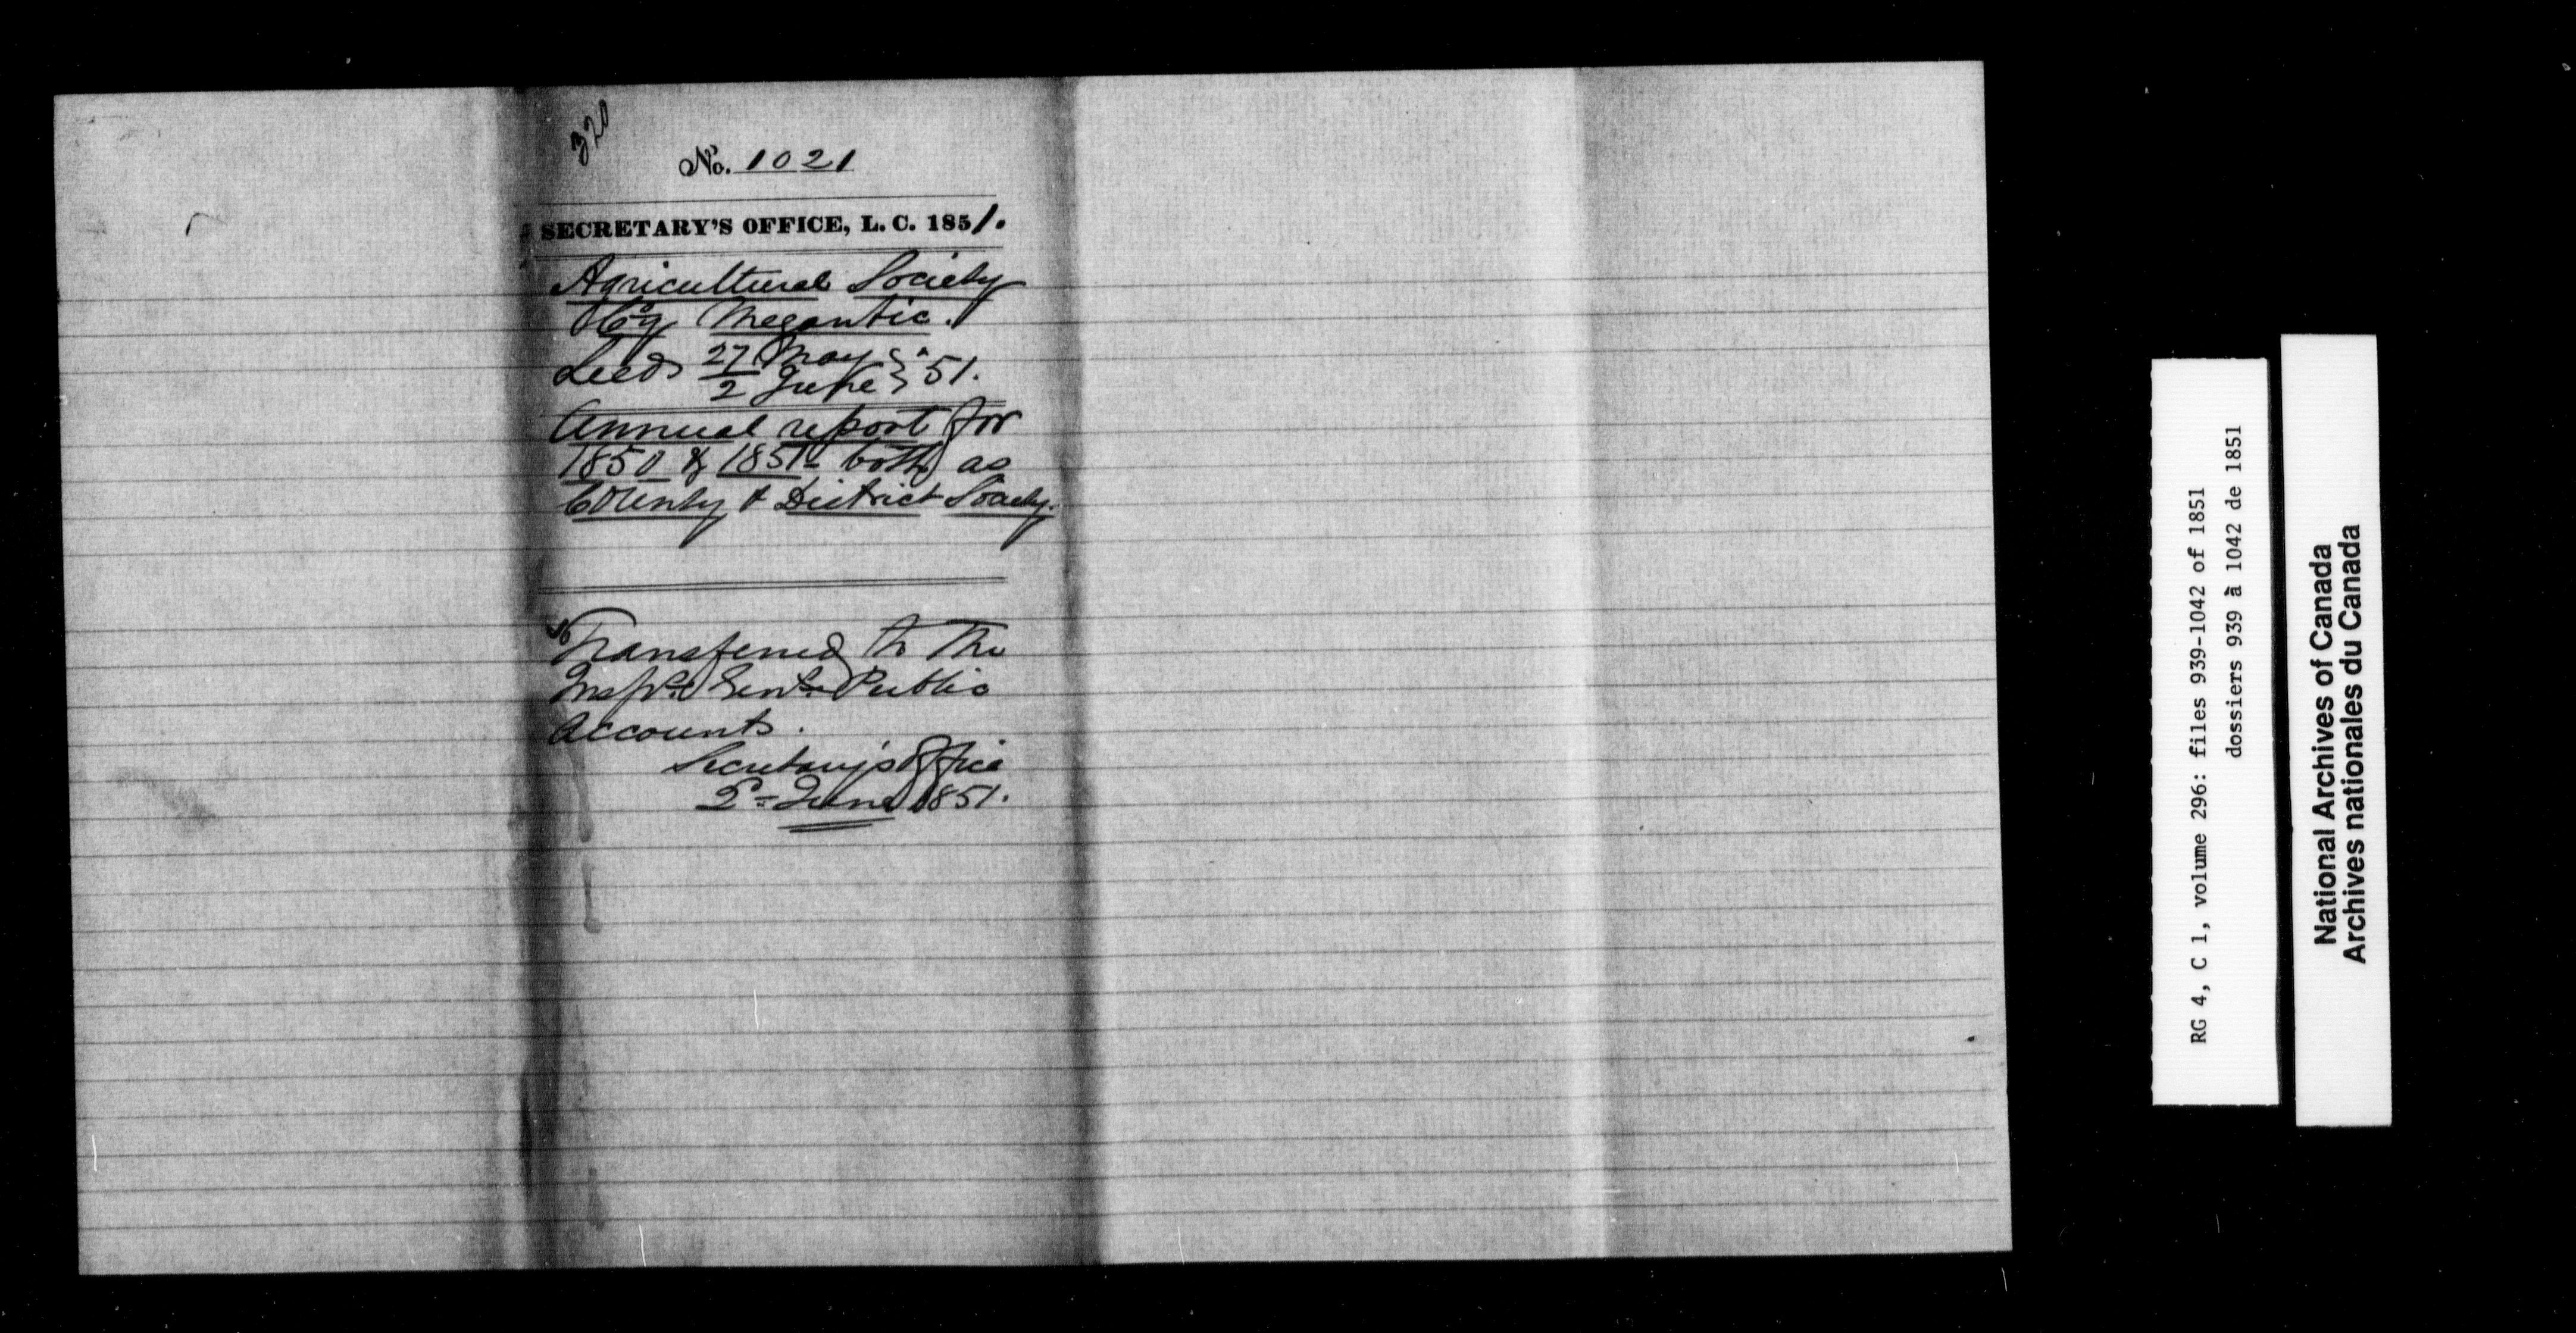 320
No. 1021
SECRETARY'S OFFICE, L. C. 1851.
Agricultural Society
Coy Megantic.
Leeds 27 May } 51.
2 June
Annual report for
1850 & 1851 both as
County & District Society.
Transferred to the
Inspr. Genl. Public
Accounts.
Secretary's Office
2d June 1851.
RG 4, C 1, volume 296: files 939-1042 of 1851
dossiers 939 à 1042 de 1851
National Archives of Canada
Archives nationales du Canada